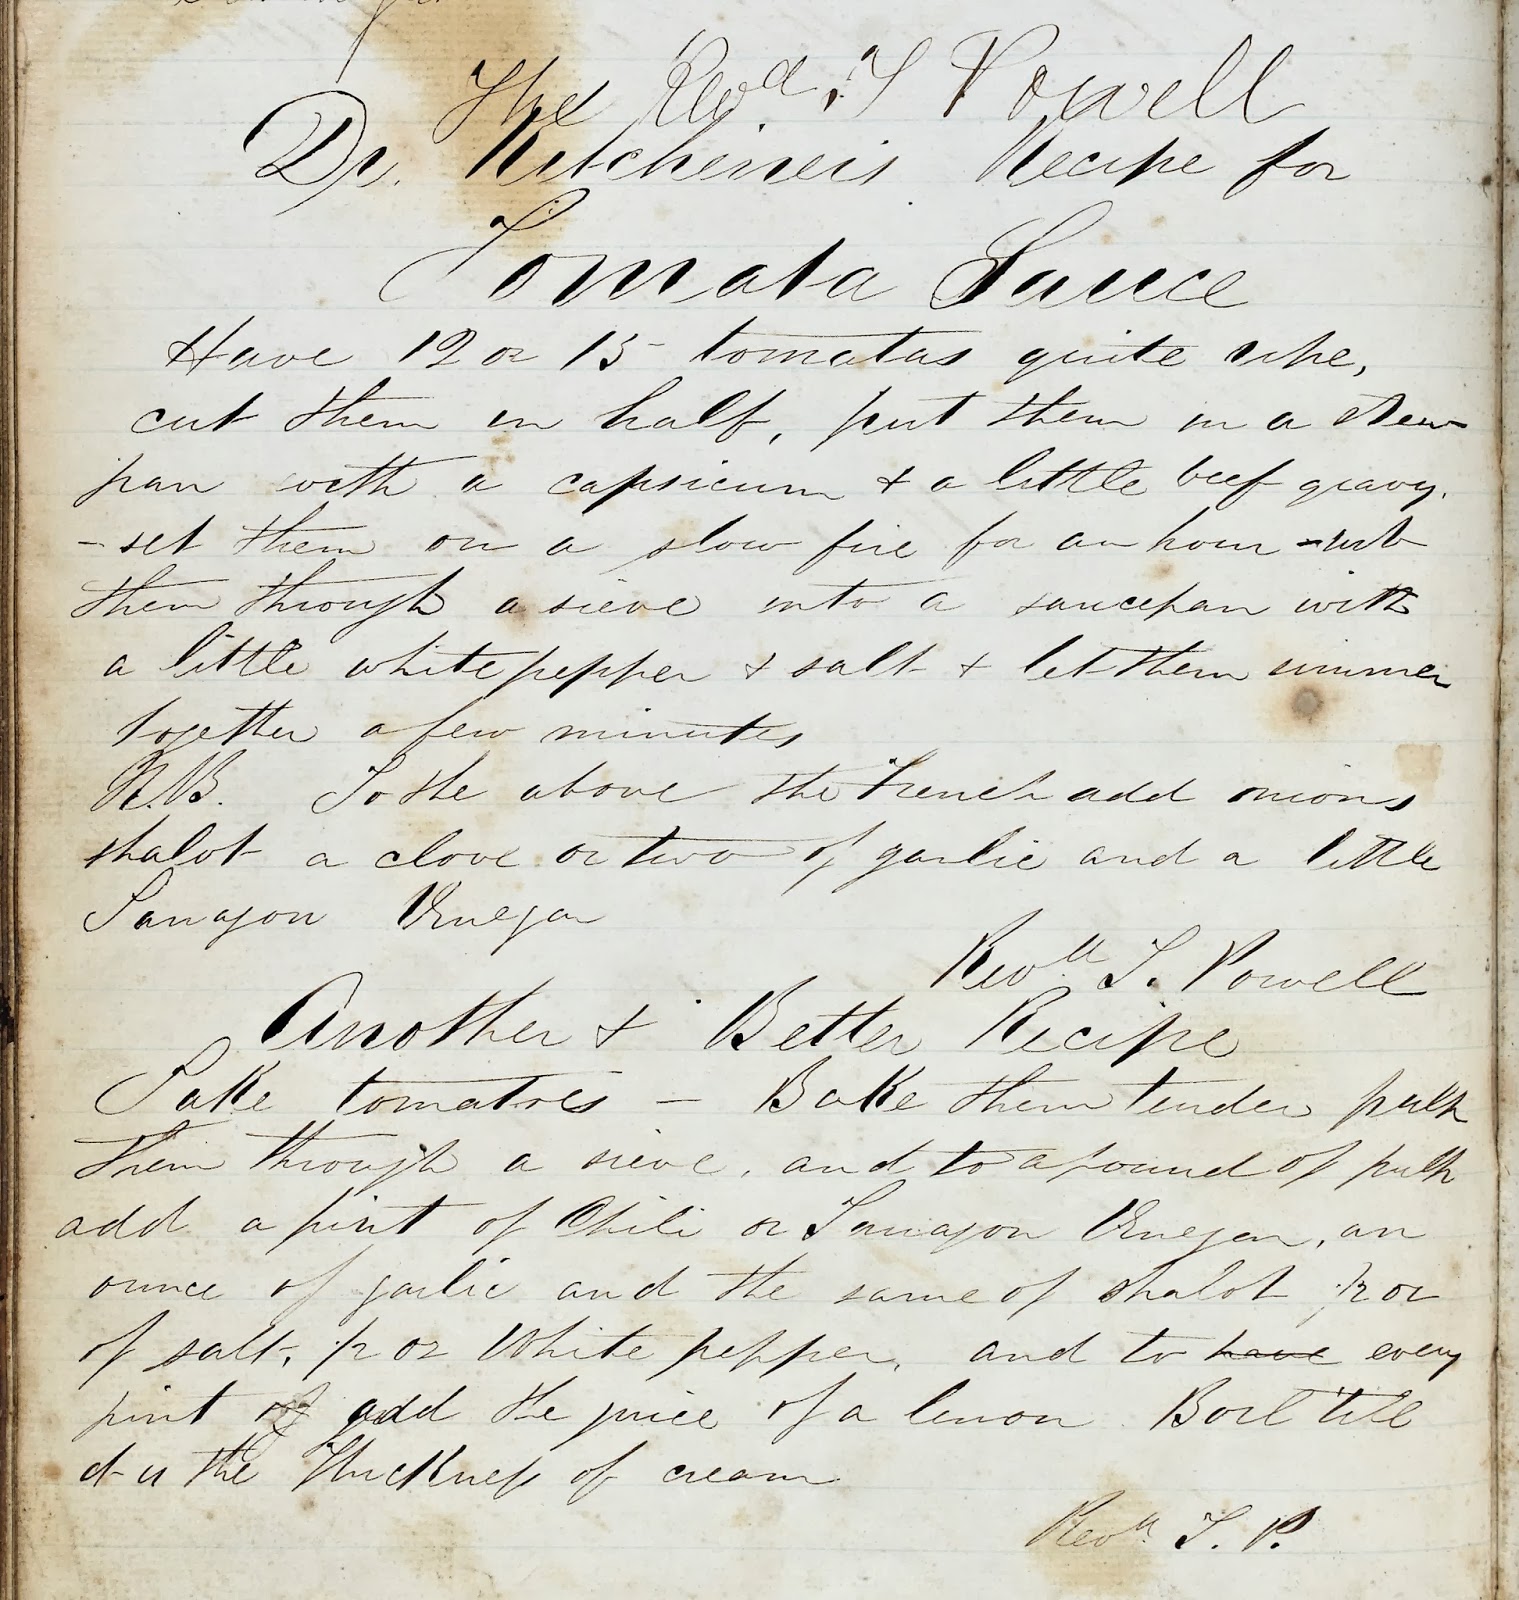 The Revd. T Powell
Dr. Kitcheners Recipe for
Tomata Sauce
Have 12 or 15 tomatas quite ripe,
cut them in half, put them in a stew-
pan with a capsicum & a little beef gravy.
- set them on a slow fire for an hour - rub
them through a sieve into a saucepan with
a little white pepper & salt & let them simmer
together a few minutes
N.B. To the above the French add onions
shalot a clove or two of garlic and a little
Tarragon Vinegar
Revd T. Powell
Another & Better Recipe
Take tomatoes - Bake them tender pulp
them through a sieve, and to a pound of pulp
add a pint of Chili or Tarragon Vinegar, an
ounce of garlic and the same of shalot 1/2 oz
of salt, 1/2 oz White pepper, and to have every
pint of add the juice of a lemon Boil till
it is the Thickness of cream
Revd. T. P.